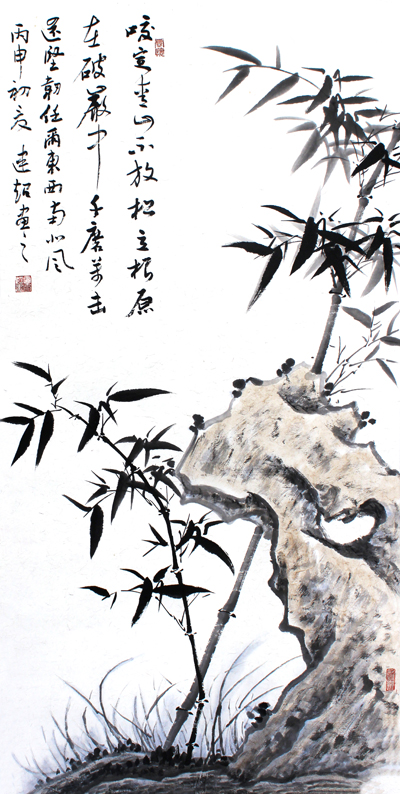 咬定青山不放松立根原
在破巖中千磨万击
还坚韧任尔東西南北风
丙申初夏建超画之